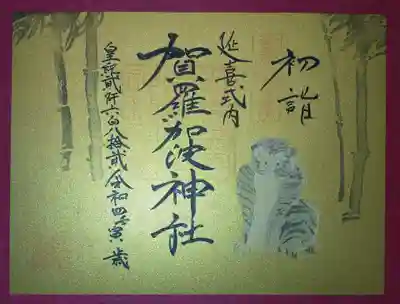 初詣
延喜式内
賀羅加波神社
皇紀貳阡六百八拾貳令和四壬寅歳